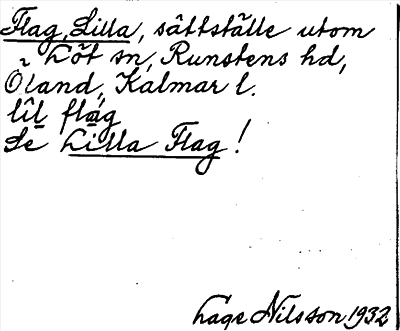 Flag, Lilla, sättställe utom
Löt sn, Runstens hd,
Öland, Kalmar l.
lìl flág
Se Lilla Flag!
Lage Nilsson 1932